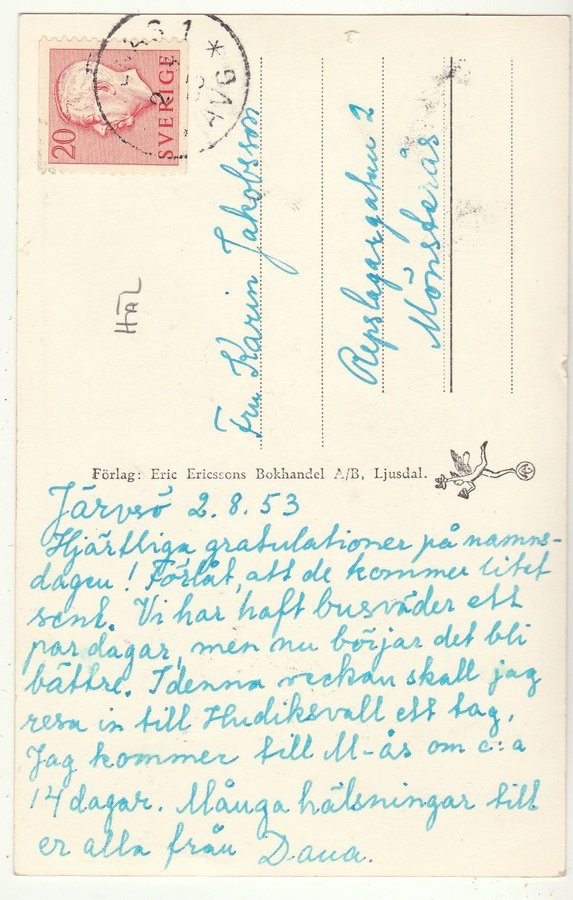 SVERIGE
20
Fru Karin Jakobsson
Repslagargatan 2
Mönsterås
HÄL
Förlag: Eric Ericssons Bokhandel A/B, Ljusdal.
Järvsö 2.8.53
Hjärtliga gratulationer på namns-
dagen! Förlåt, att de kommer litet
sent. Vi har haft busväder ett
par dagar, men nu börjar det bli
bättre. I denna veckan skall jag
resa in till Hudiksvall ett tag.
Jag kommer till M-ås om c:a
14 dagar. Många hälsningar till
er alla från